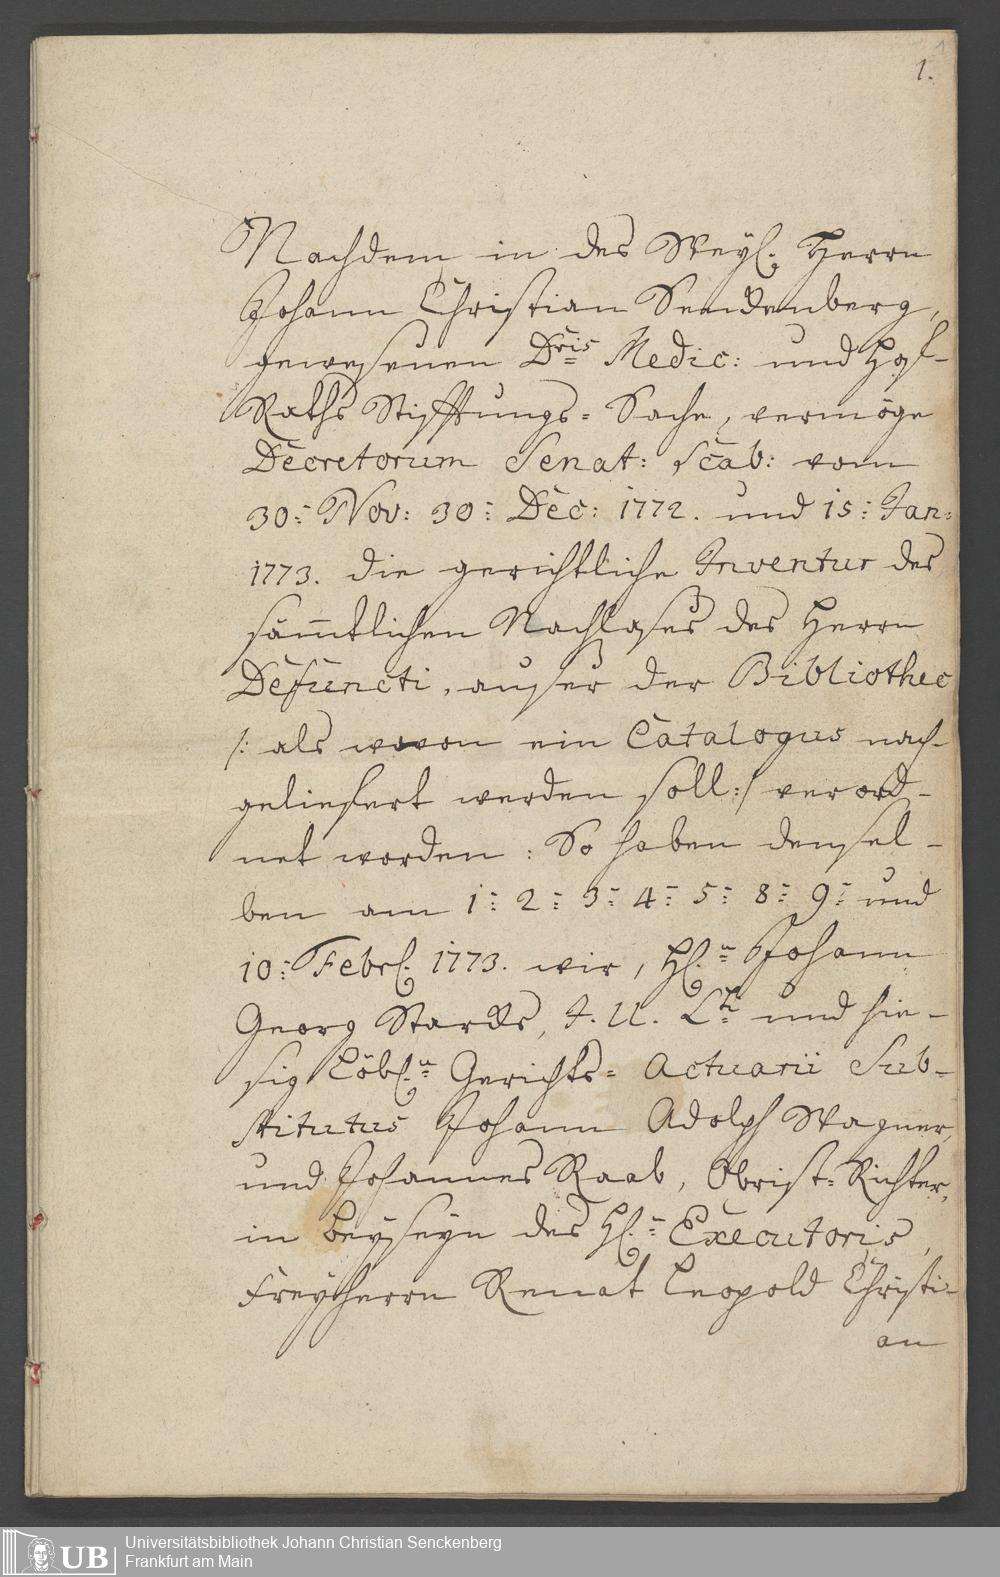 1.
Nachdem in des Weyl. Herrn
Johann Christian Senckenberg,
gewesenen Dris Medic: und Hof-
Raths Stifftungs= Sache, vermöge
Decretorum Senat: scab: vom
30: Nov: 30: Dec: 1772. und 15: Jan:
1773. die gerichtliche Inventur des
sämtlichen Nachlaßes des Herrn
Defuncti, außer der Bibliothec
/: als wovon ein Catalogus nach-
geliefert werden soll :/ verord-
net worden: So haben densel-
ben am 1: 2: 3: 4: 5: 8: 9: und
10: Febrl. 1773. wir, Hl. Johann
Georg Starcks, J. U. Lt. und hie-
sig Löbl. Gerichts= Actuarii Sub-
stitutus Johann Adolph Wagner,
und Johannes Raab, Obrist= Richter,
in Beyseyn des Hl. Executoris,
Freyherrn Renat Leopold Christi-
an
UB
Universitätsbibliothek Johann Christian Senckenberg
Frankfurt am Main